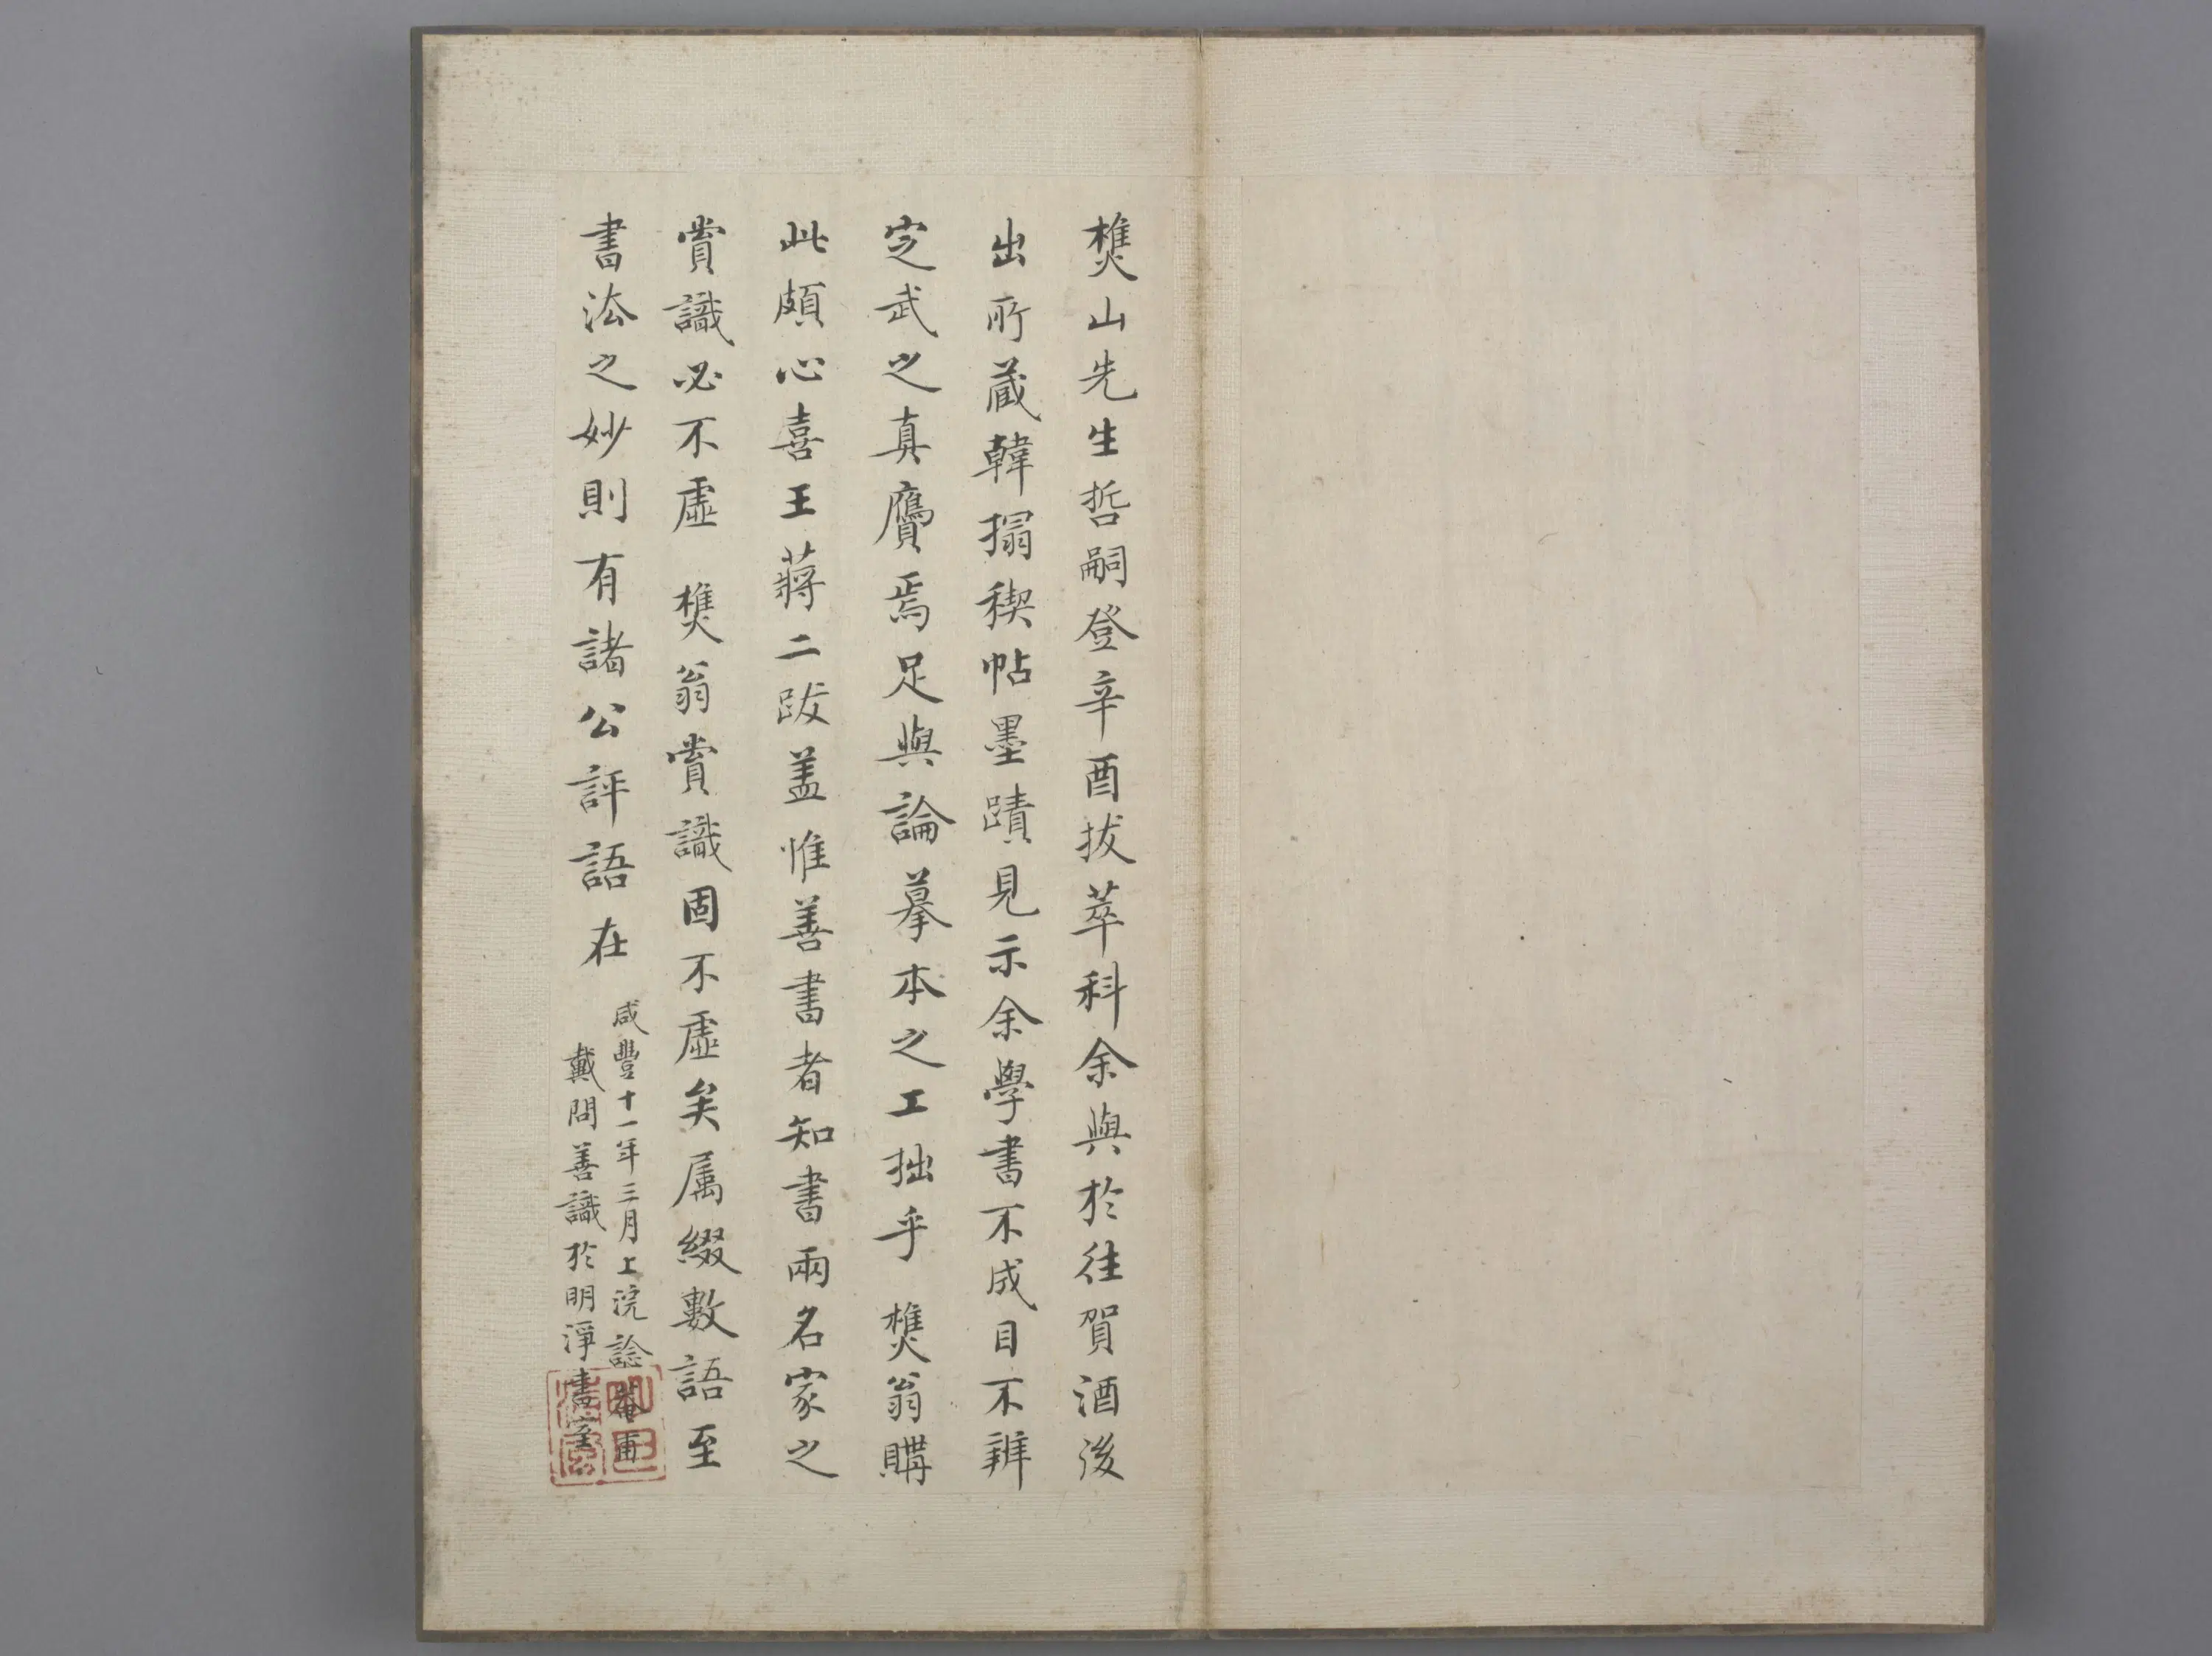 樵山先生哲嗣登辛酉拔萃科余與於往賀酒後
出所藏韓搨稧帖墨蹟見示余學書不成目不辨
定武之真贗焉足與論摹本之工拙乎 樵翁購
此頗心喜王蔣二跋盖惟善書者知書兩名家之
賞識必不虛 樵翁賞識固不虛矣属綴數語至
書法之妙則有諸公評語在
咸豐十一年三月上浣諗菴甫
戴問善識於明淨書室